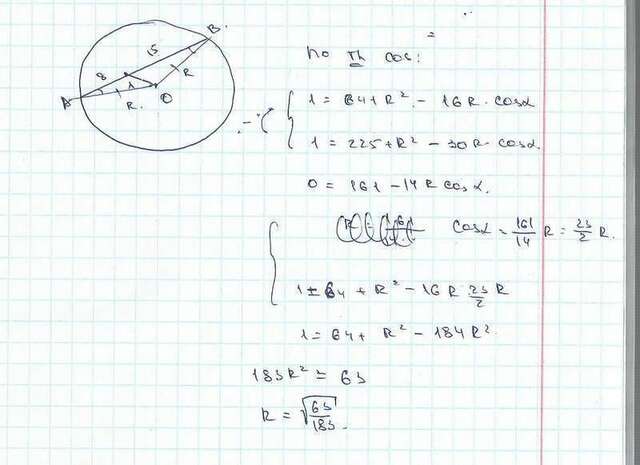 B.
15
R
8
1
A
R.
O
По Th cos:
1 = 64 + R² - 16R · cosα
1 = 225 + R² - 30R · cosα.
0 = 161 - 14R cosα.
cosα = 161/14 R = 23/2 R.
1 = 64 + R² - 16R 23/2 R
1 = 64 + R² - 184R².
183R² = 63
R = √63/183.